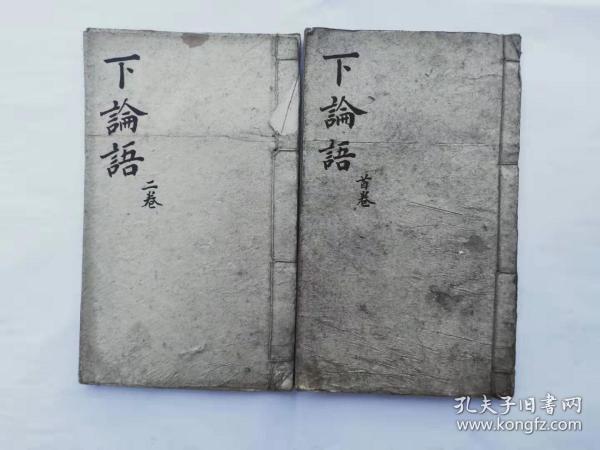 下論語
二卷
下論語
首卷
孔夫子旧書网
www.kongfz.com